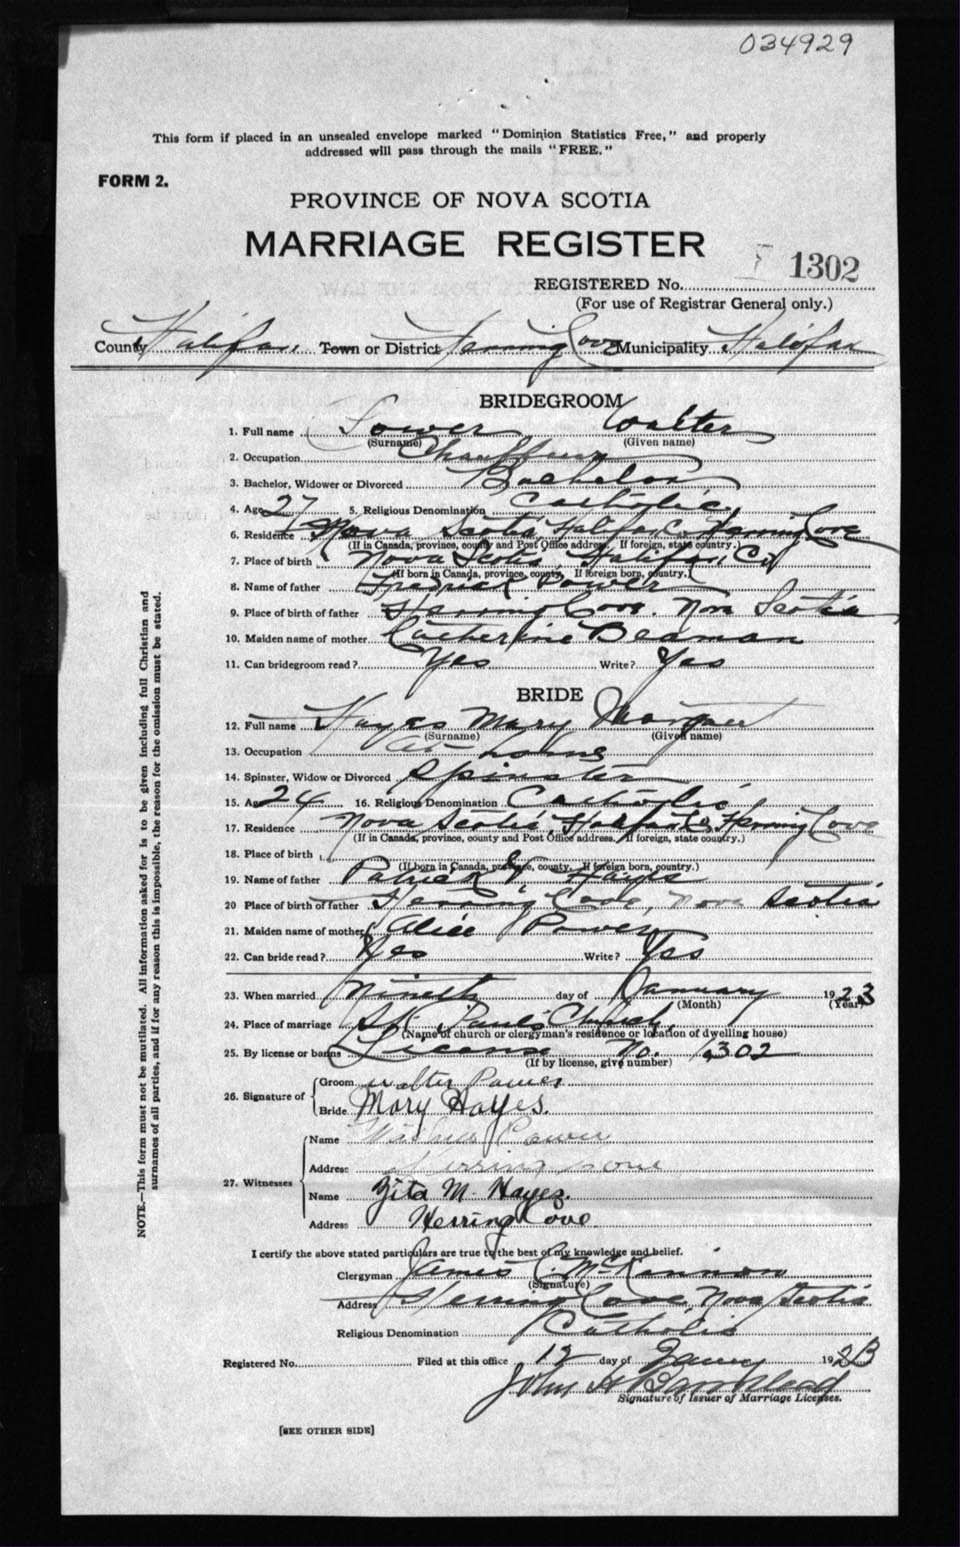 034929
This form if placed in an unsealed envelope marked "Dominion Statistics Free," and properly
addressed will pass through the mails "FREE."
FORM 2.
PROVINCE OF NOVA SCOTIA
MARRIAGE REGISTER
1302
REGISTERED No.
(For use of Registrar General only.)
County Halifax Town or District Herring Cove Municipality Halifax
BRIDEGROOM
1. Full name Power Walter
(Surname) (Given name)
2. Occupation Chauffeur
3. Bachelor, Widower or Divorced Bachelor
4. Age 27 5. Religious Denomination Catholic
6. Residence Nova Scotia, Halifax C Herring Cove
(If in Canada, province, county and Post Office address. If foreign, state country.)
7. Place of birth Nova Scotia, Halifax Co
(If born in Canada, province, county. If foreign born, country.)
8. Name of father Fredrick Power
9. Place of birth of father Herring Cove. Nova Scotia
10. Maiden name of mother Catherine Beaman
11. Can bridegroom read? Yes Write? Yes
BRIDE
12. Full name Hayes Mary Margaret
(Surname) (Given name)
13. Occupation At home
14. Spinster, Widow or Divorced Spinster
15. Age 24 16. Religious Denomination Catholic
17. Residence Nova Scotia, Halifax Co, Herring Cove
(If in Canada, province, county and Post Office address. If foreign, state country.)
18. Place of birth
(If born in Canada, province, county. If foreign born, country.)
19. Name of father Patrick Hayes
20 Place of birth of father Herring Cove, Nova Scotia
21. Maiden name of mother Alice Power
22. Can bride read? Yes Write? Yes
23. When married Nineth day of January 1923
(Month) (Year)
24. Place of marriage St Paul's Church,
(Name of church or clergyman's residence or location of dwelling house)
25. By license or banns License No. 1302
(If by license, give number)
26. Signature of Groom Walter Power
Bride Mary Hayes.
27. Witnesses
Name Power
Address Herring Cove
Name Zita M. Hayes.
Address Herring Cove
I certify the above stated particulars are true to the best of my knowledge and belief.
Clergyman James C. McKinnon
(Signature)
Address Herring Cove Nova Scotia
Religious Denomination Catholic
Registered No. Filed at this office 12 day of January 1923
John H
Signature of Issuer of Marriage Licenses.
[SEE OTHER SIDE]
NOTE.—This form must not be mutilated. All information asked for is to be given including full Christian and
surnames of all parties, and if for any reason this is impossible, the reason for the omission must be stated.